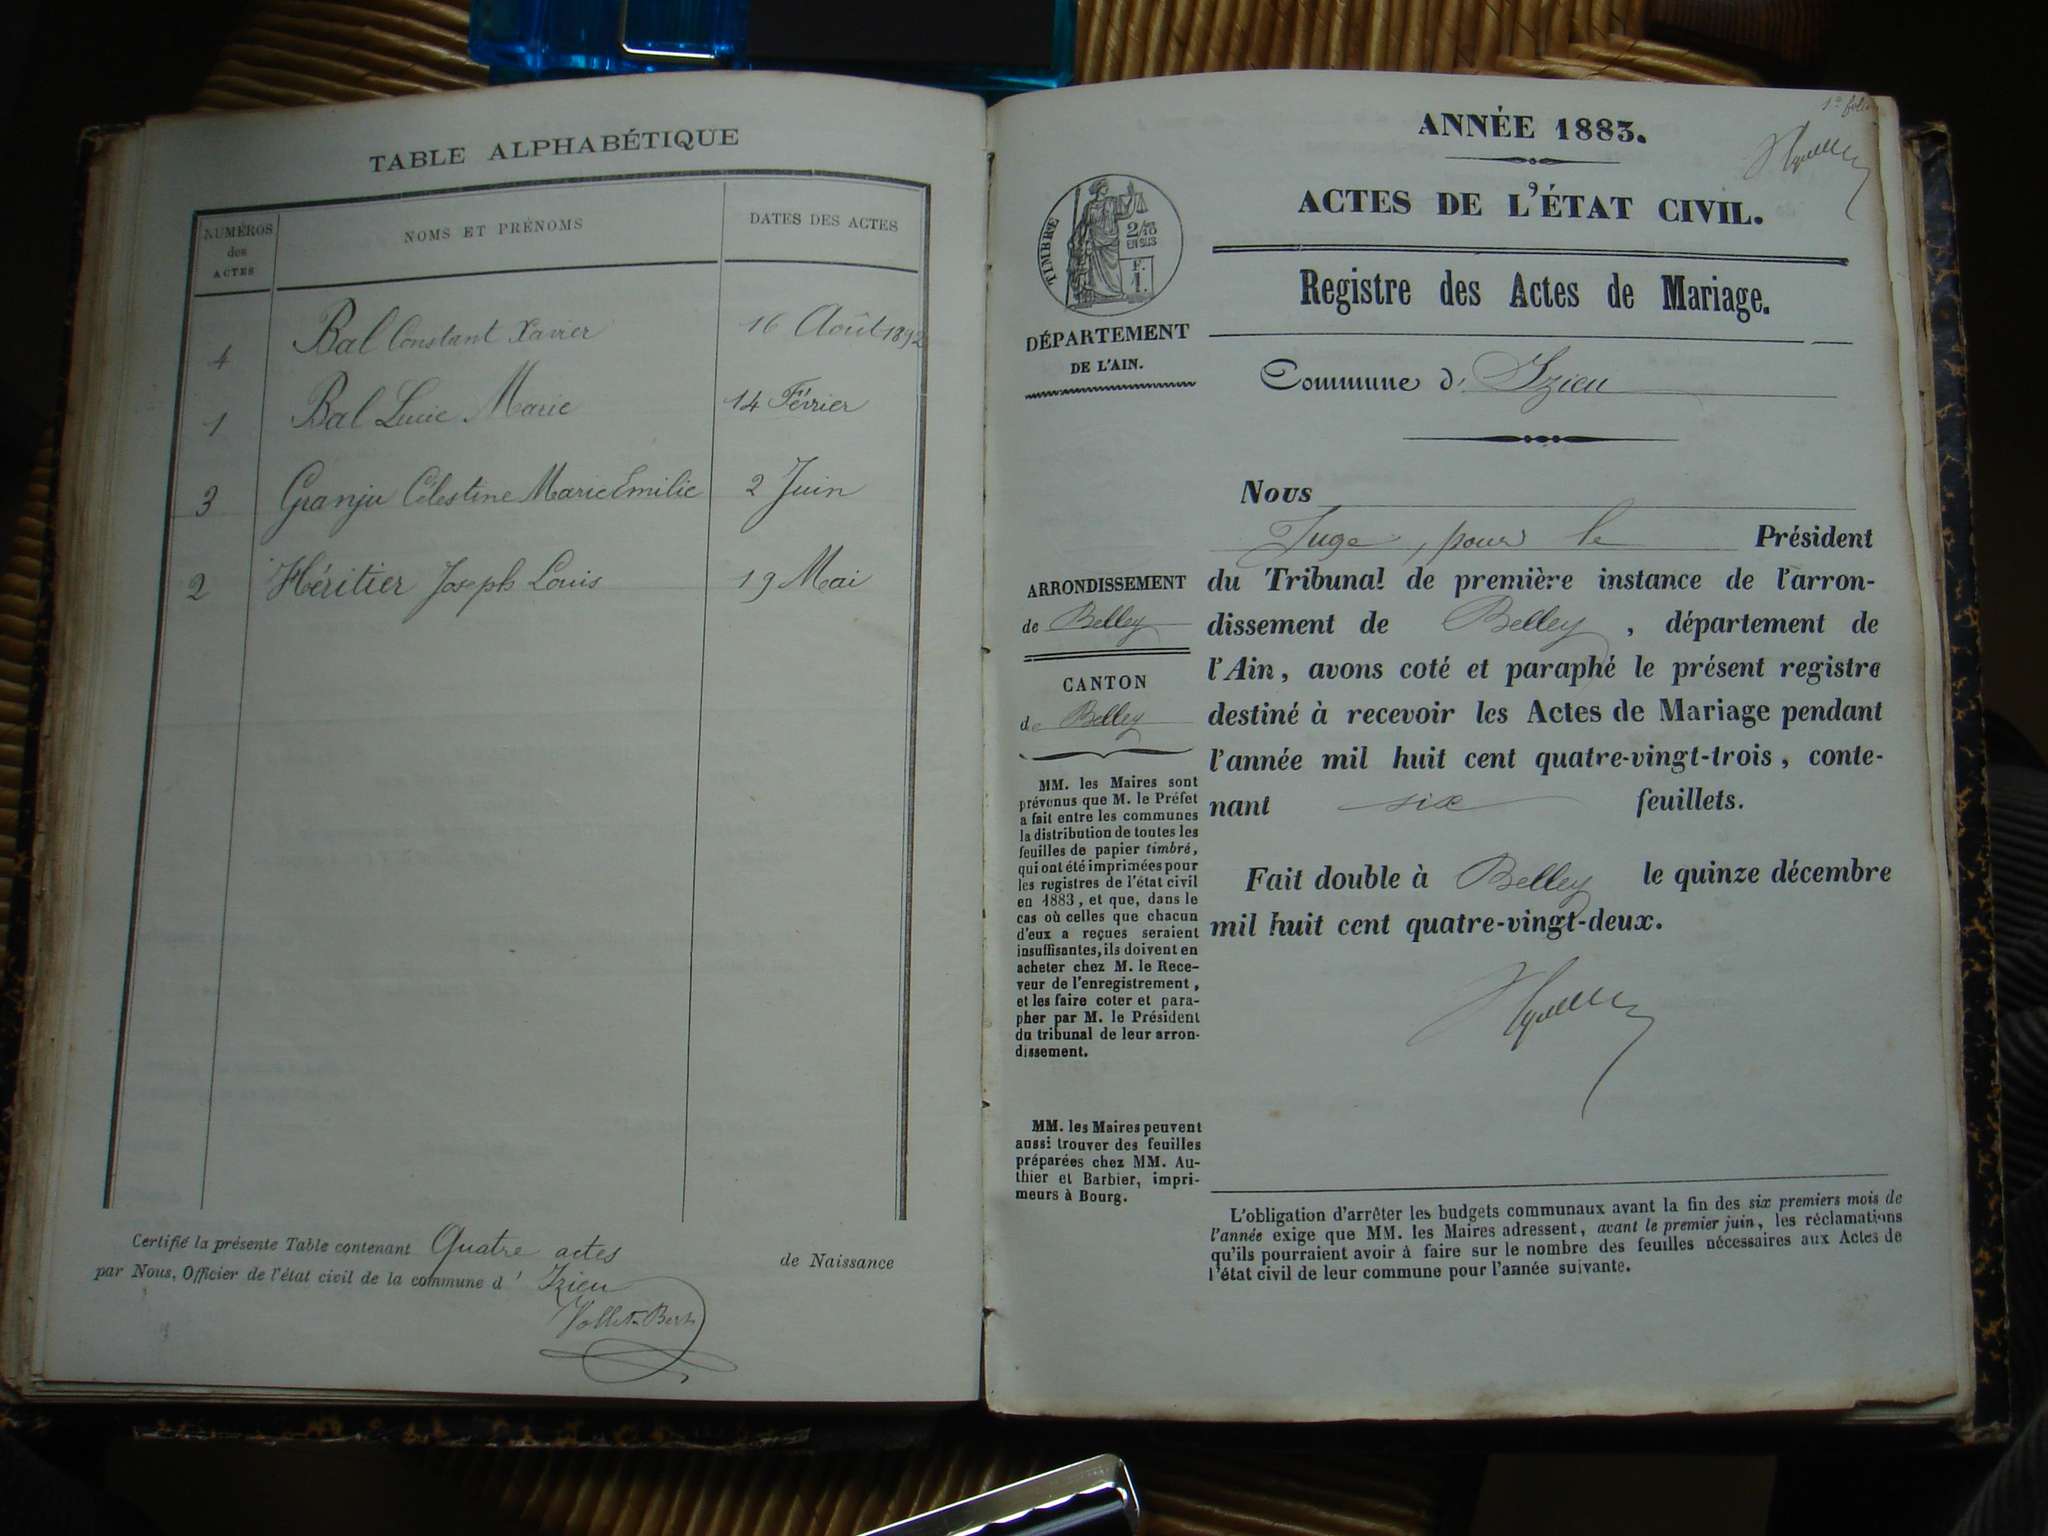 TABLE ALPHABÉTIQUE
NUMÉROS
des
ACTES
NOMS ET PRÉNOMS
DATES DES ACTES
4 Bal Constant Xavier 16 Août 1892
1 Bal Lucie Marie 14 Février
3 Granju Célestine Marie Emilie 2 Juin
2 Héritier Joseph Louis 19 Mai
Certifié la présente Table contenant Quatre actes de Naissance
par Nous, Officier de l'état civil de la commune d' Izieu
1er
ANNÉE 1883.
ACTES DE L'ÉTAT CIVIL.
Registre des Actes de Mariage.
Commune d' Izieu
TIMBRE
2/10
EN SUS
F.
1.
DÉPARTEMENT
DE L'AIN.
ARRONDISSEMENT
de Belley
CANTON
de Belley
MM. les Maires sont
prévenus que M. le Préfet
a fait entre les communes
la distribution de toutes les
feuilles de papier timbré,
qui ont été imprimées pour
les registres de l'état civil
en 1883, et que, dans le
cas où celles que chacun
d'eux a reçues seraient
insuffisantes, ils doivent en
acheter chez M. le Rece-
veur de l'enregistrement,
et les faire coter et para-
pher par M. le Président
du tribunal de leur arron-
dissement.
MM. les Maires peuvent
aussi trouver des feuilles
préparées chez MM. Au-
thier et Barbier, impri-
meurs à Bourg.
Nous
Juge, pour le Président
du Tribunal de première instance de l'arron-
dissement de Belley, département de
l'Ain, avons coté et paraphé le présent registre
destiné à recevoir les Actes de Mariage pendant
l'année mil huit cent quatre-vingt-trois, conte-
nant six feuillets.
Fait double à Belley le quinze décembre
mil huit cent quatre-vingt-deux.
L'obligation d'arrêter les budgets communaux avant la fin des six premiers mois de
l'année exige que MM. les Maires adressent, avant le premier juin, les réclamations
qu'ils pourraient avoir à faire sur le nombre des feuilles nécessaires aux Actes de
l'état civil de leur commune pour l'année suivante.